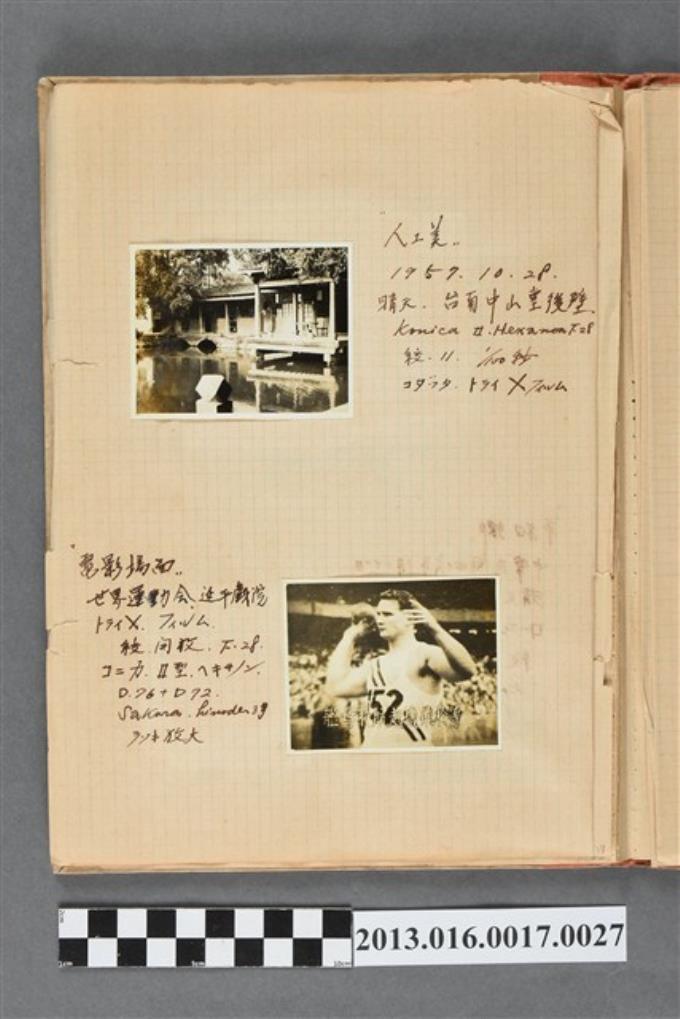 "人工美"
1957.10.28.
晴天. 台南中山堂後壁.
Konica II. Hexanon F.28
絞. 11. 1/100秒
コダック. トライ X フィルム
"電影場面"
世界運動会. 延平戲院
トライX. フィルム.
絞. 開放. F.28.
コニカ. II型. ヘキサノン.
D.76+D72.
Sakura.
放大
52
2013.016.0017.0027